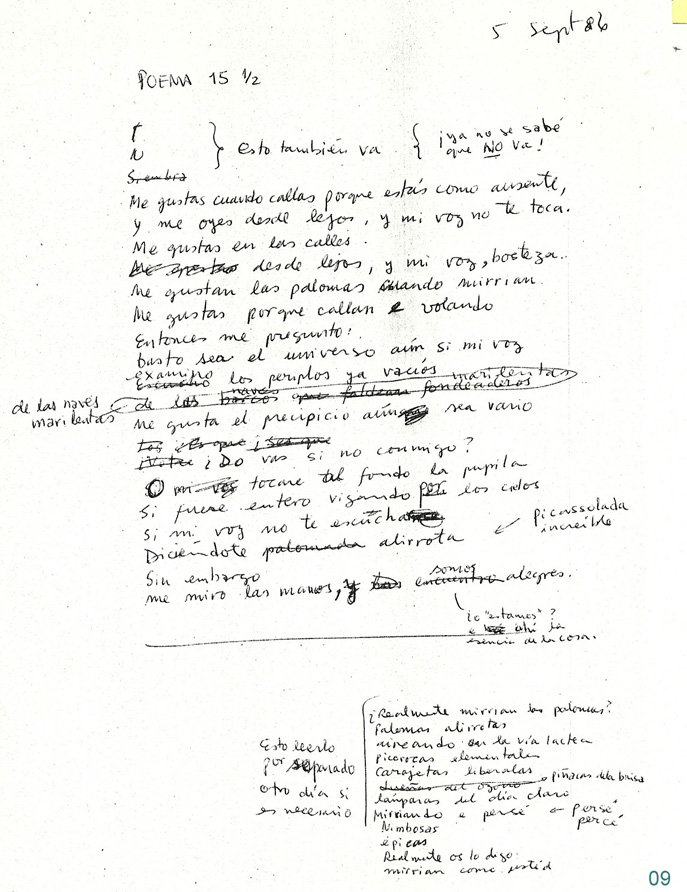 5 Sept 86
POEMA 15 1/2
T
N
} esto también va { ¡ya no se sabé
que NO va!
Siembra
Me gustas cuando callas porque estás como ausente,
y me oyes desde lejos, y mi voz no te toca.
Me gustas en las calles.
Me gustas desde lejos, y mi voz, bosteza..
Me gustan las palomas cuando mirrian.
Me gustas porque callan e volando
Entonces me pregunto:
basto sea el universo aún si mi voz
examino
Escucho los periplos ya vacíos
de las naves
marilentas
de los barcos que faltean fondeaderos
naves marilentas
Me gusta el precipicio aún sea vario
¿Es que ¿Sea que
¿Do vas si no conmigo?
O mi voz tocare al fondo la pupila
Si fuese entero vigando por los cielos
si mi voz no te escucha
Diciéndote palomada alirrota
Picassolada
increíble
Sin embargo
me miro las manos, y encuentro somos alegres.
¿o "estamos"?
e ahí la
esencia de la cosa.
Esto leerlo
por separado
otro día si
es necesario
¿Realmente mirrian las palomas?
Palomas alirrotas
aireando en la vía lactea
picorocas elementales
Carajetas liberales
dueñas del ozono o piñacas de la brisa
lámparas del día claro
Mirriando e persé o persé
percé
Nimbosas
épicas
Realmente os lo digo:
mirrian como usted
09